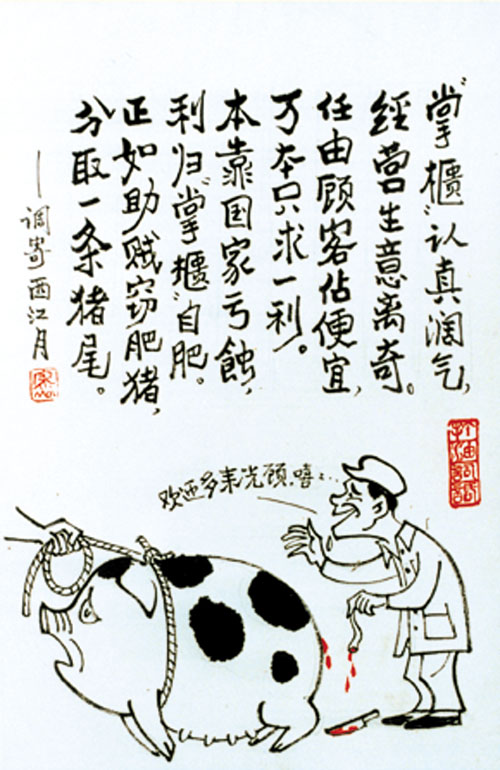 “掌櫃”认真阔气,
經营生意离奇。
任由顾客佔便宜,
万本只求一利。
本靠国家亏蚀,
利归“掌櫃”自肥。
正如助贼窃肥猪,
分取一条猪尾。
——调寄西江月
欢迎多来光顾,嘻……